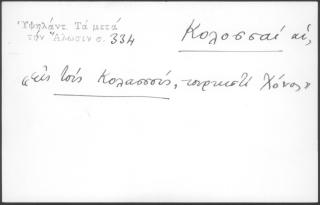 Ὑψηλάντ. Τά μετά
τήν Ἅλωσιν σ. 334
Κολοσσαί αἱ,
«εἰς τούς Κολασσούς, τουρκιστί Χόνος»